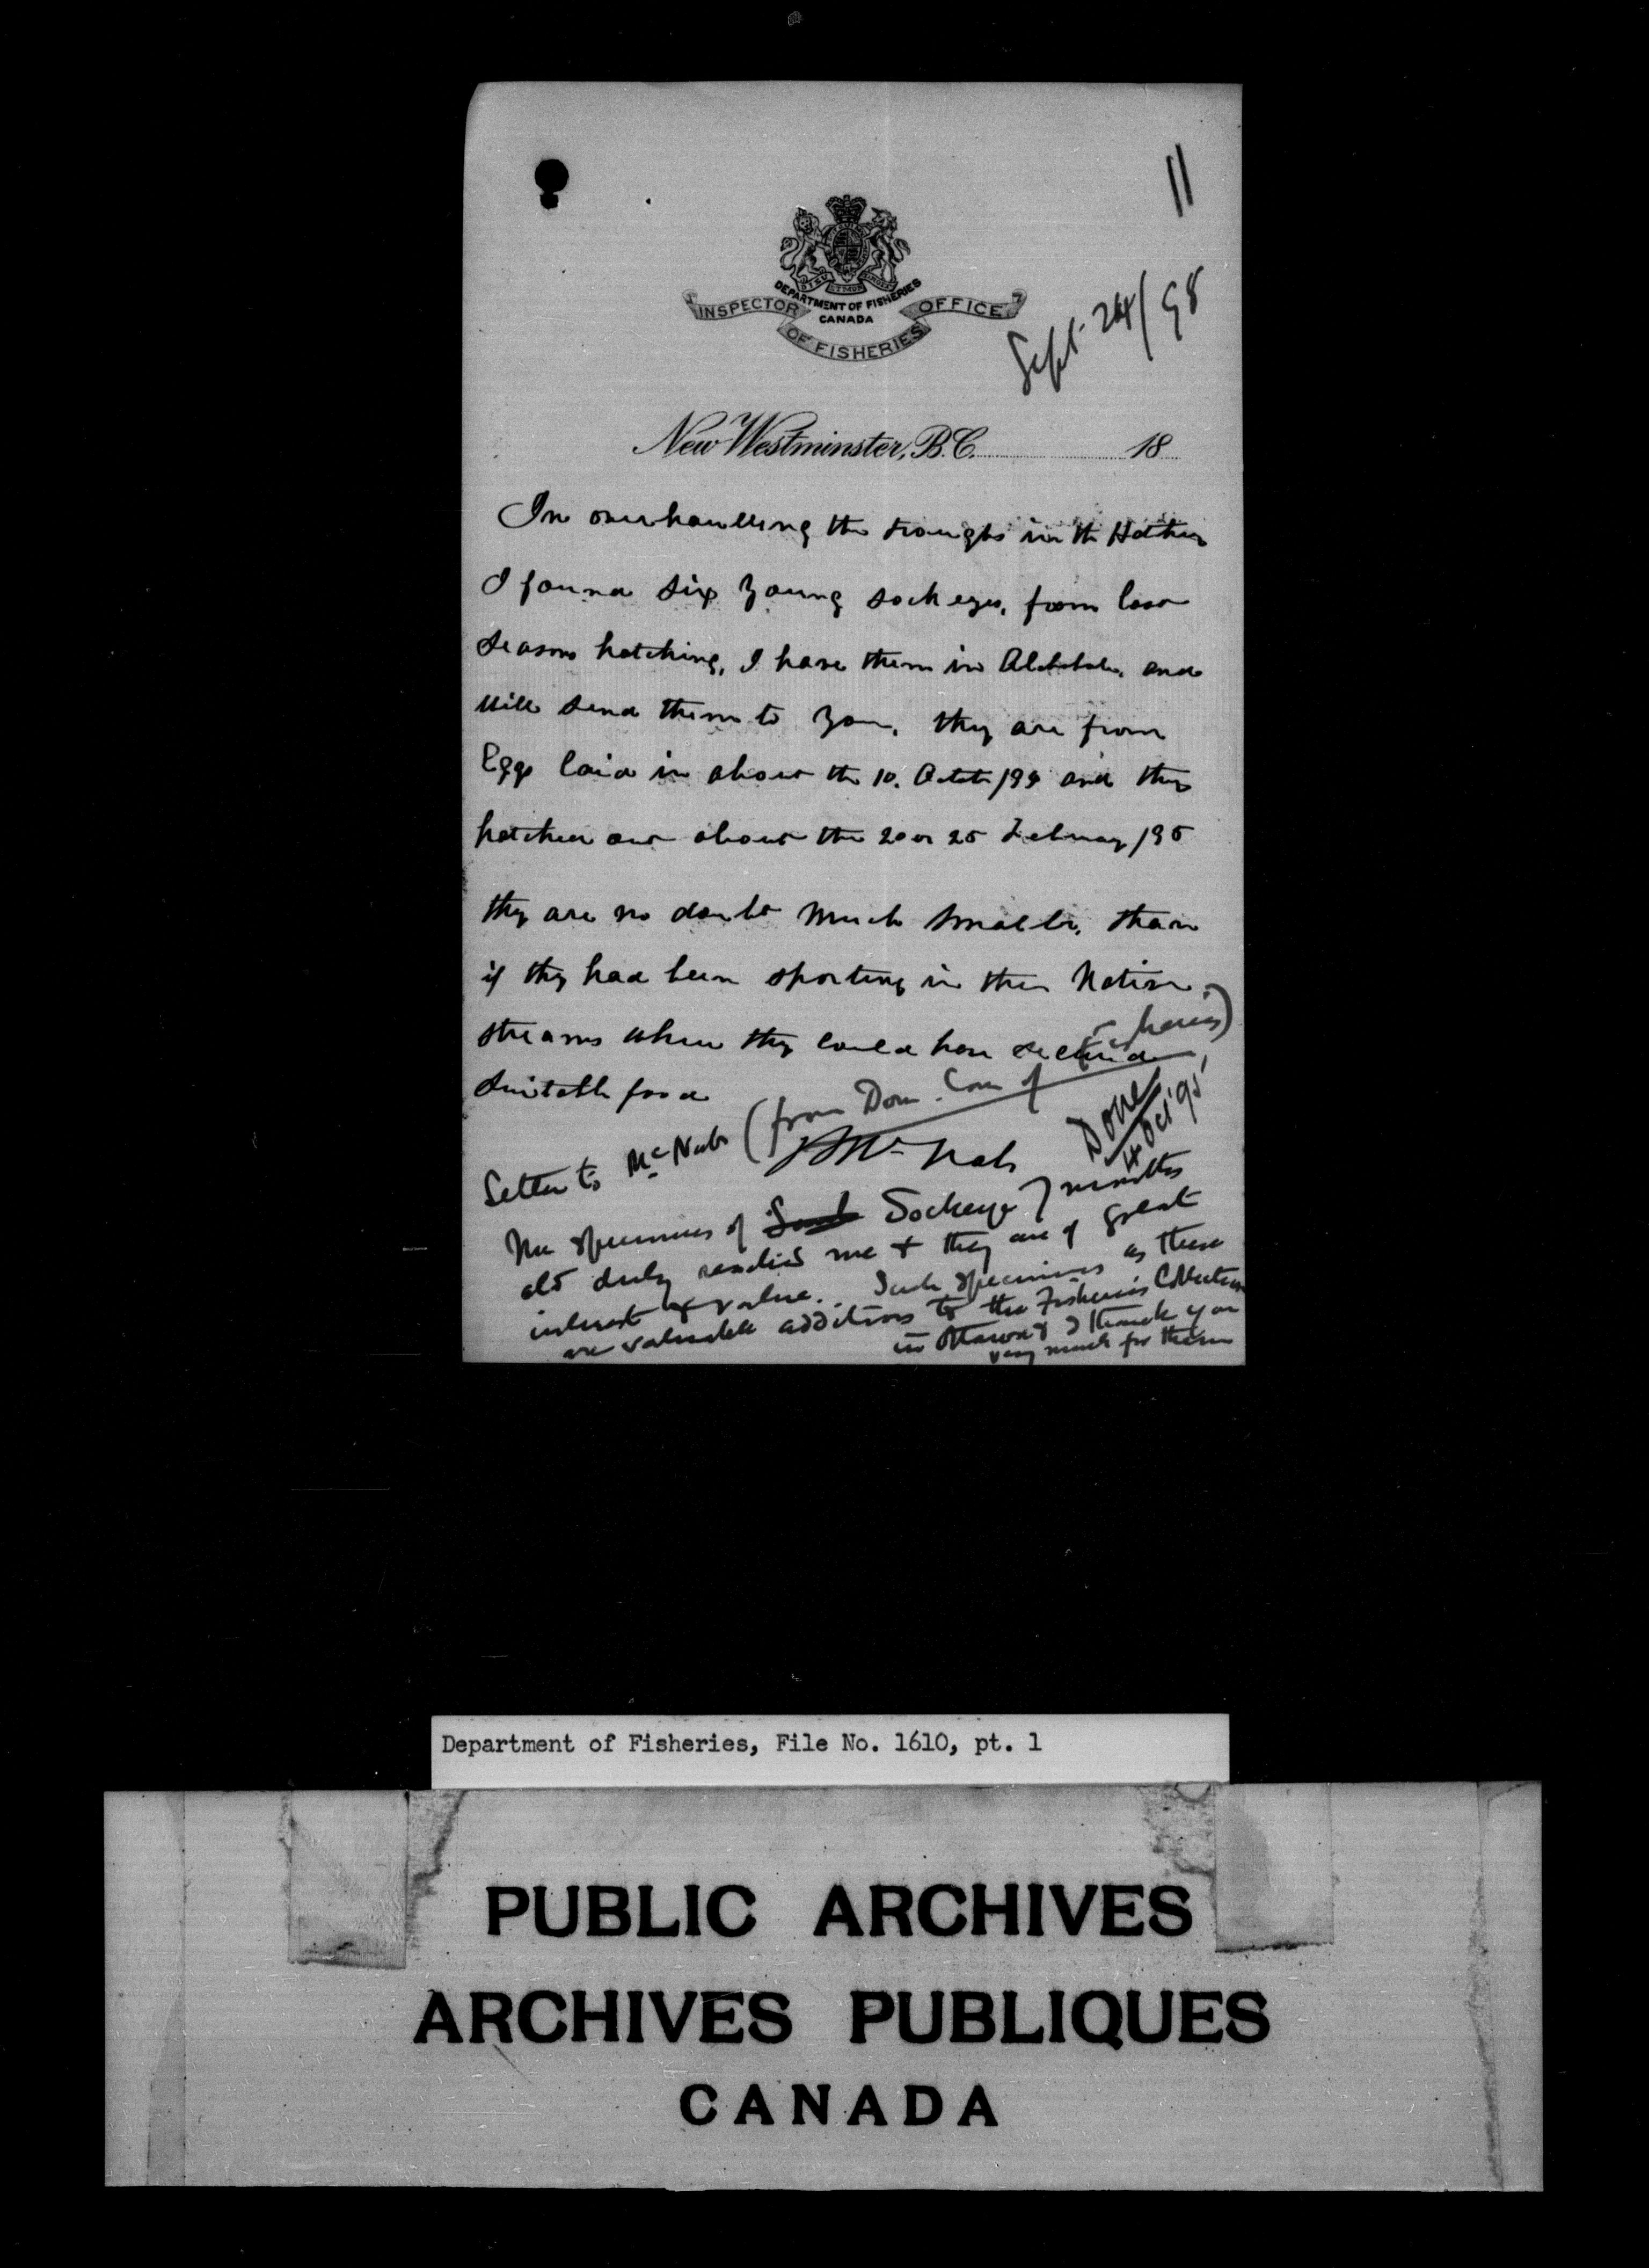 11
DEPARTMENT OF FISHERIES
CANADA
INSPECTOR OF FISHERIES OFFICE
Sept. 24/98
New Westminster, B.C. 18
In overhaulling the troughs in the Hatchery
I found six young sockeyes, from last
seasons hatching, I have them in and
will send them to you, they are from
Eggs laid in about the 10. and they
hatched out about the 20 or 25 February /95
they are no doubt much smaller, than
if they had been sporting in their Native
streams where they could have
suitable food
J McNab
Letter to McNab (from Dom. Com of Fisheries)
Done
4 Oct '95
The specimens of Sockeye 7 months
old duly reached me & they are of great
interest & value. Such specimens as these
are valuable additions to the Fisheries Collection
in Ottawa & I thank you
very much for them
Department of Fisheries, File No. 1610, pt. 1
PUBLIC ARCHIVES
ARCHIVES PUBLIQUES
CANADA